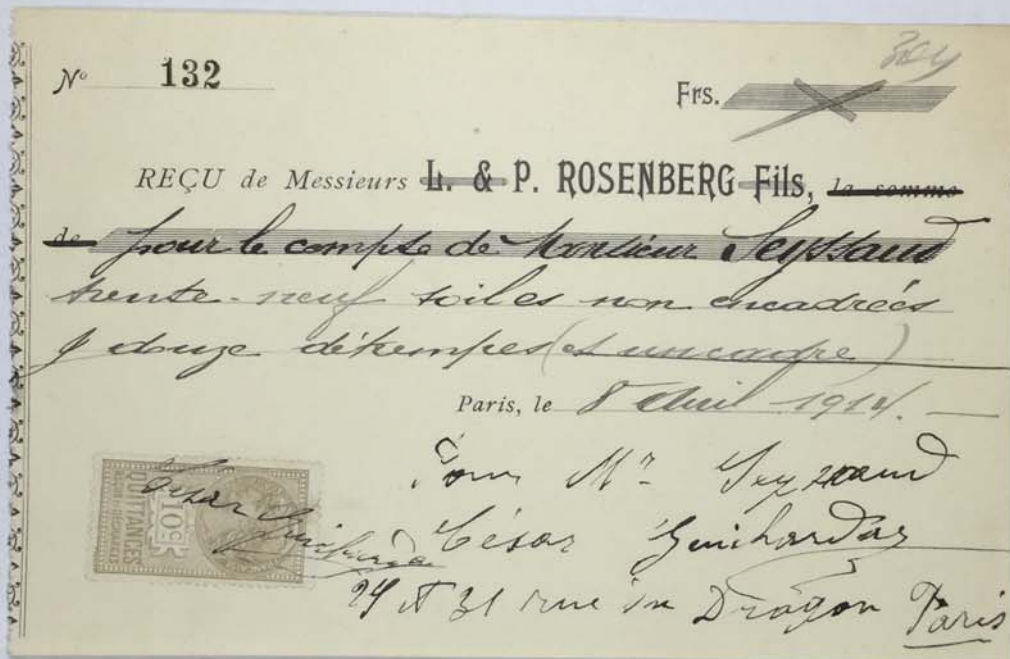 Nº 132
Frs.
REÇU de Messieurs L. & P. ROSENBERG Fils, la somme
de pour le compte de Monsieur Seyssaud
trente-neuf toiles non encadrées
& douze détrempes (et un cadre)
Paris, le 8 Avril 1914.
Pour Mr Seyssaud
César
29 et 31 rue du Dragon Paris
QUITTANCES
10c
César